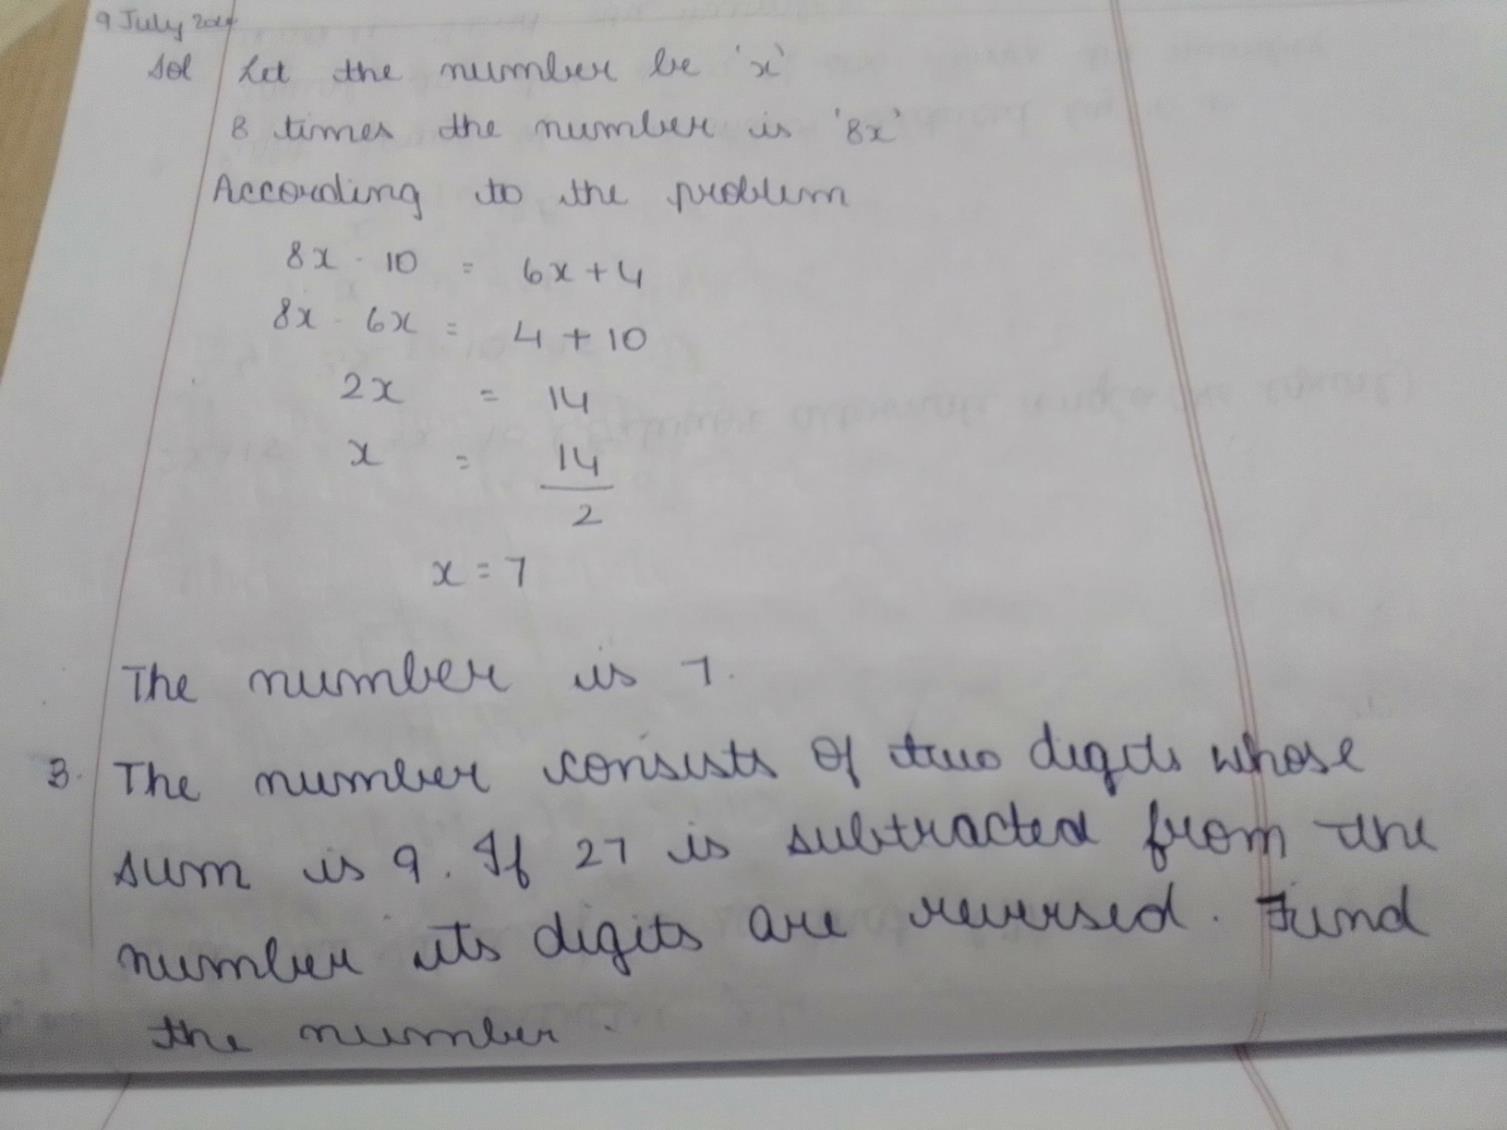 9 July
Sol Let the number be 'x'
8 times the number is '8x'
According to the problem
8x - 10 = 6x + 4
8x - 6x = 4 + 10
2x = 14
x = 14
2
x = 7
The number is 7.
3. The number consists of two digits whose
sum is 9. If 27 is subtracted from the
number its digits are reversed. Find
the number.